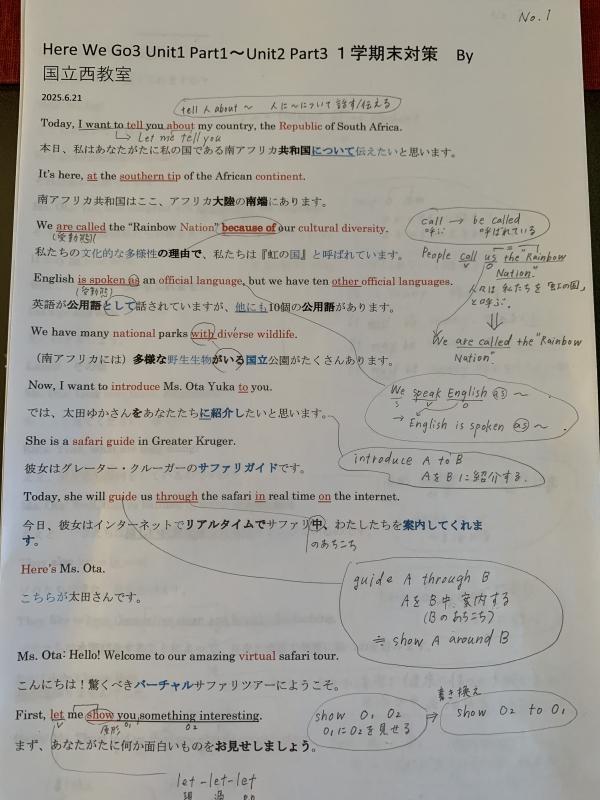 No.1
Here We Go3 Unit1 Part1～Unit2 Part3 １学期末対策　By
国立西教室
2025.6.21
tell 人 about ～　人に～について 話す/伝える
Today, I want to tell you about my country, the Republic of South Africa.
Let me tell you
本日、私はあなたがたに私の国である南アフリカ共和国について伝えたいと思います。
It's here, at the southern tip of the African continent.
南アフリカ共和国はここ、アフリカ大陸の南端にあります。
We are called the “Rainbow Nation” because of our cultural diversity.
(受動態)
私たちの文化的な多様性の理由で、私たちは『虹の国』と呼ばれています。
call → be called
呼ぶ　呼ばれている
People call us the "Rainbow
V O
Nation."
人々は私たちを「虹の国」
と呼ぶ。
⇓
We are called the "Rainbow
Nation".
English is spoken as an official language, but we have ten other official languages.
(受動態)
英語が公用語として話されていますが、他にも10個の公用語があります。
We have many national parks with diverse wildlife.
（南アフリカには）多様な野生生物がいる国立公園がたくさんあります。
Now, I want to introduce Ms. Ota Yuka to you.
では、太田ゆかさんをあなたたちに紹介したいと思います。
We speak English as ～ .
S V O
→ English is spoken as ～ .
She is a safari guide in Greater Kruger.
彼女はグレーター・クルーガーのサファリガイドです。
introduce A to B
AをBに紹介する.
Today, she will guide us through the safari in real time on the internet.
今日、彼女はインターネットでリアルタイムでサファリ中、わたしたちを案内してくれま
す。
のあちこち
Here's Ms. Ota.
こちらが太田さんです。
guide A through B
AをB中案内する
(Bのあちこち)
≒ show A around B
Ms. Ota: Hello! Welcome to our amazing virtual safari tour.
こんにちは！驚くべきバーチャルサファリツアーにようこそ。
First, let me show you something interesting.
V 原形 O₁ O₂
まず、あなたがたに何か面白いものをお見せしましょう。
show O₁ O₂
O₁にO₂を見せる
書き換え
⇒ show O₂ to O₁
let-let-let
現 過